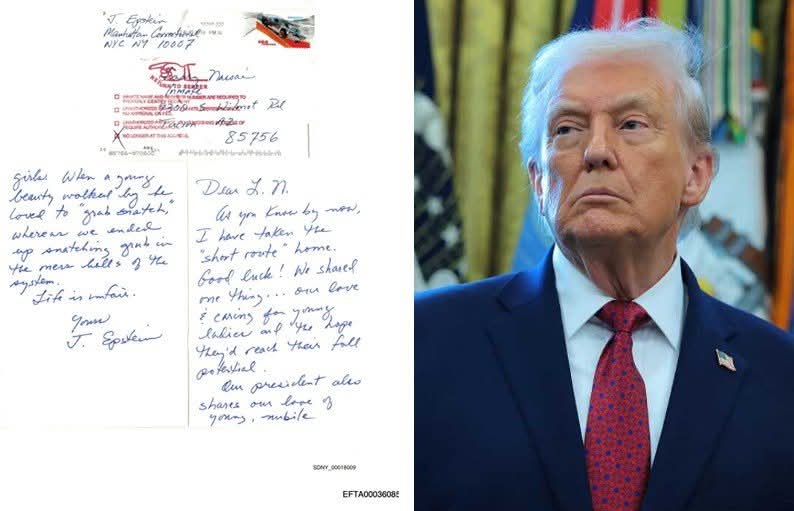 J. Epstein
Manhattan Correctional
NYC NY 10007
USA
RETURN TO SENDER
Larry Nassar
Inmate
9300 S. Wilmot Rd
Tucson AZ
85756
NO LONGER AT THIS ADDRESS
girls. When a young
beauty walked by he
loved to "grab snatch,"
whereas we ended
up snatching grub in
the mess halls of the
system.
Life is unfair.
Yours
J. Epstein
Dear L. N.
As you know by now,
I have taken the
"short route" home.
Good luck! We shared
one thing... our love
& caring for young
ladies and the hope
they'd reach their full
potential.
Our president also
shares our love of
young, nubile
SDNY_00018009
EFTA00036085